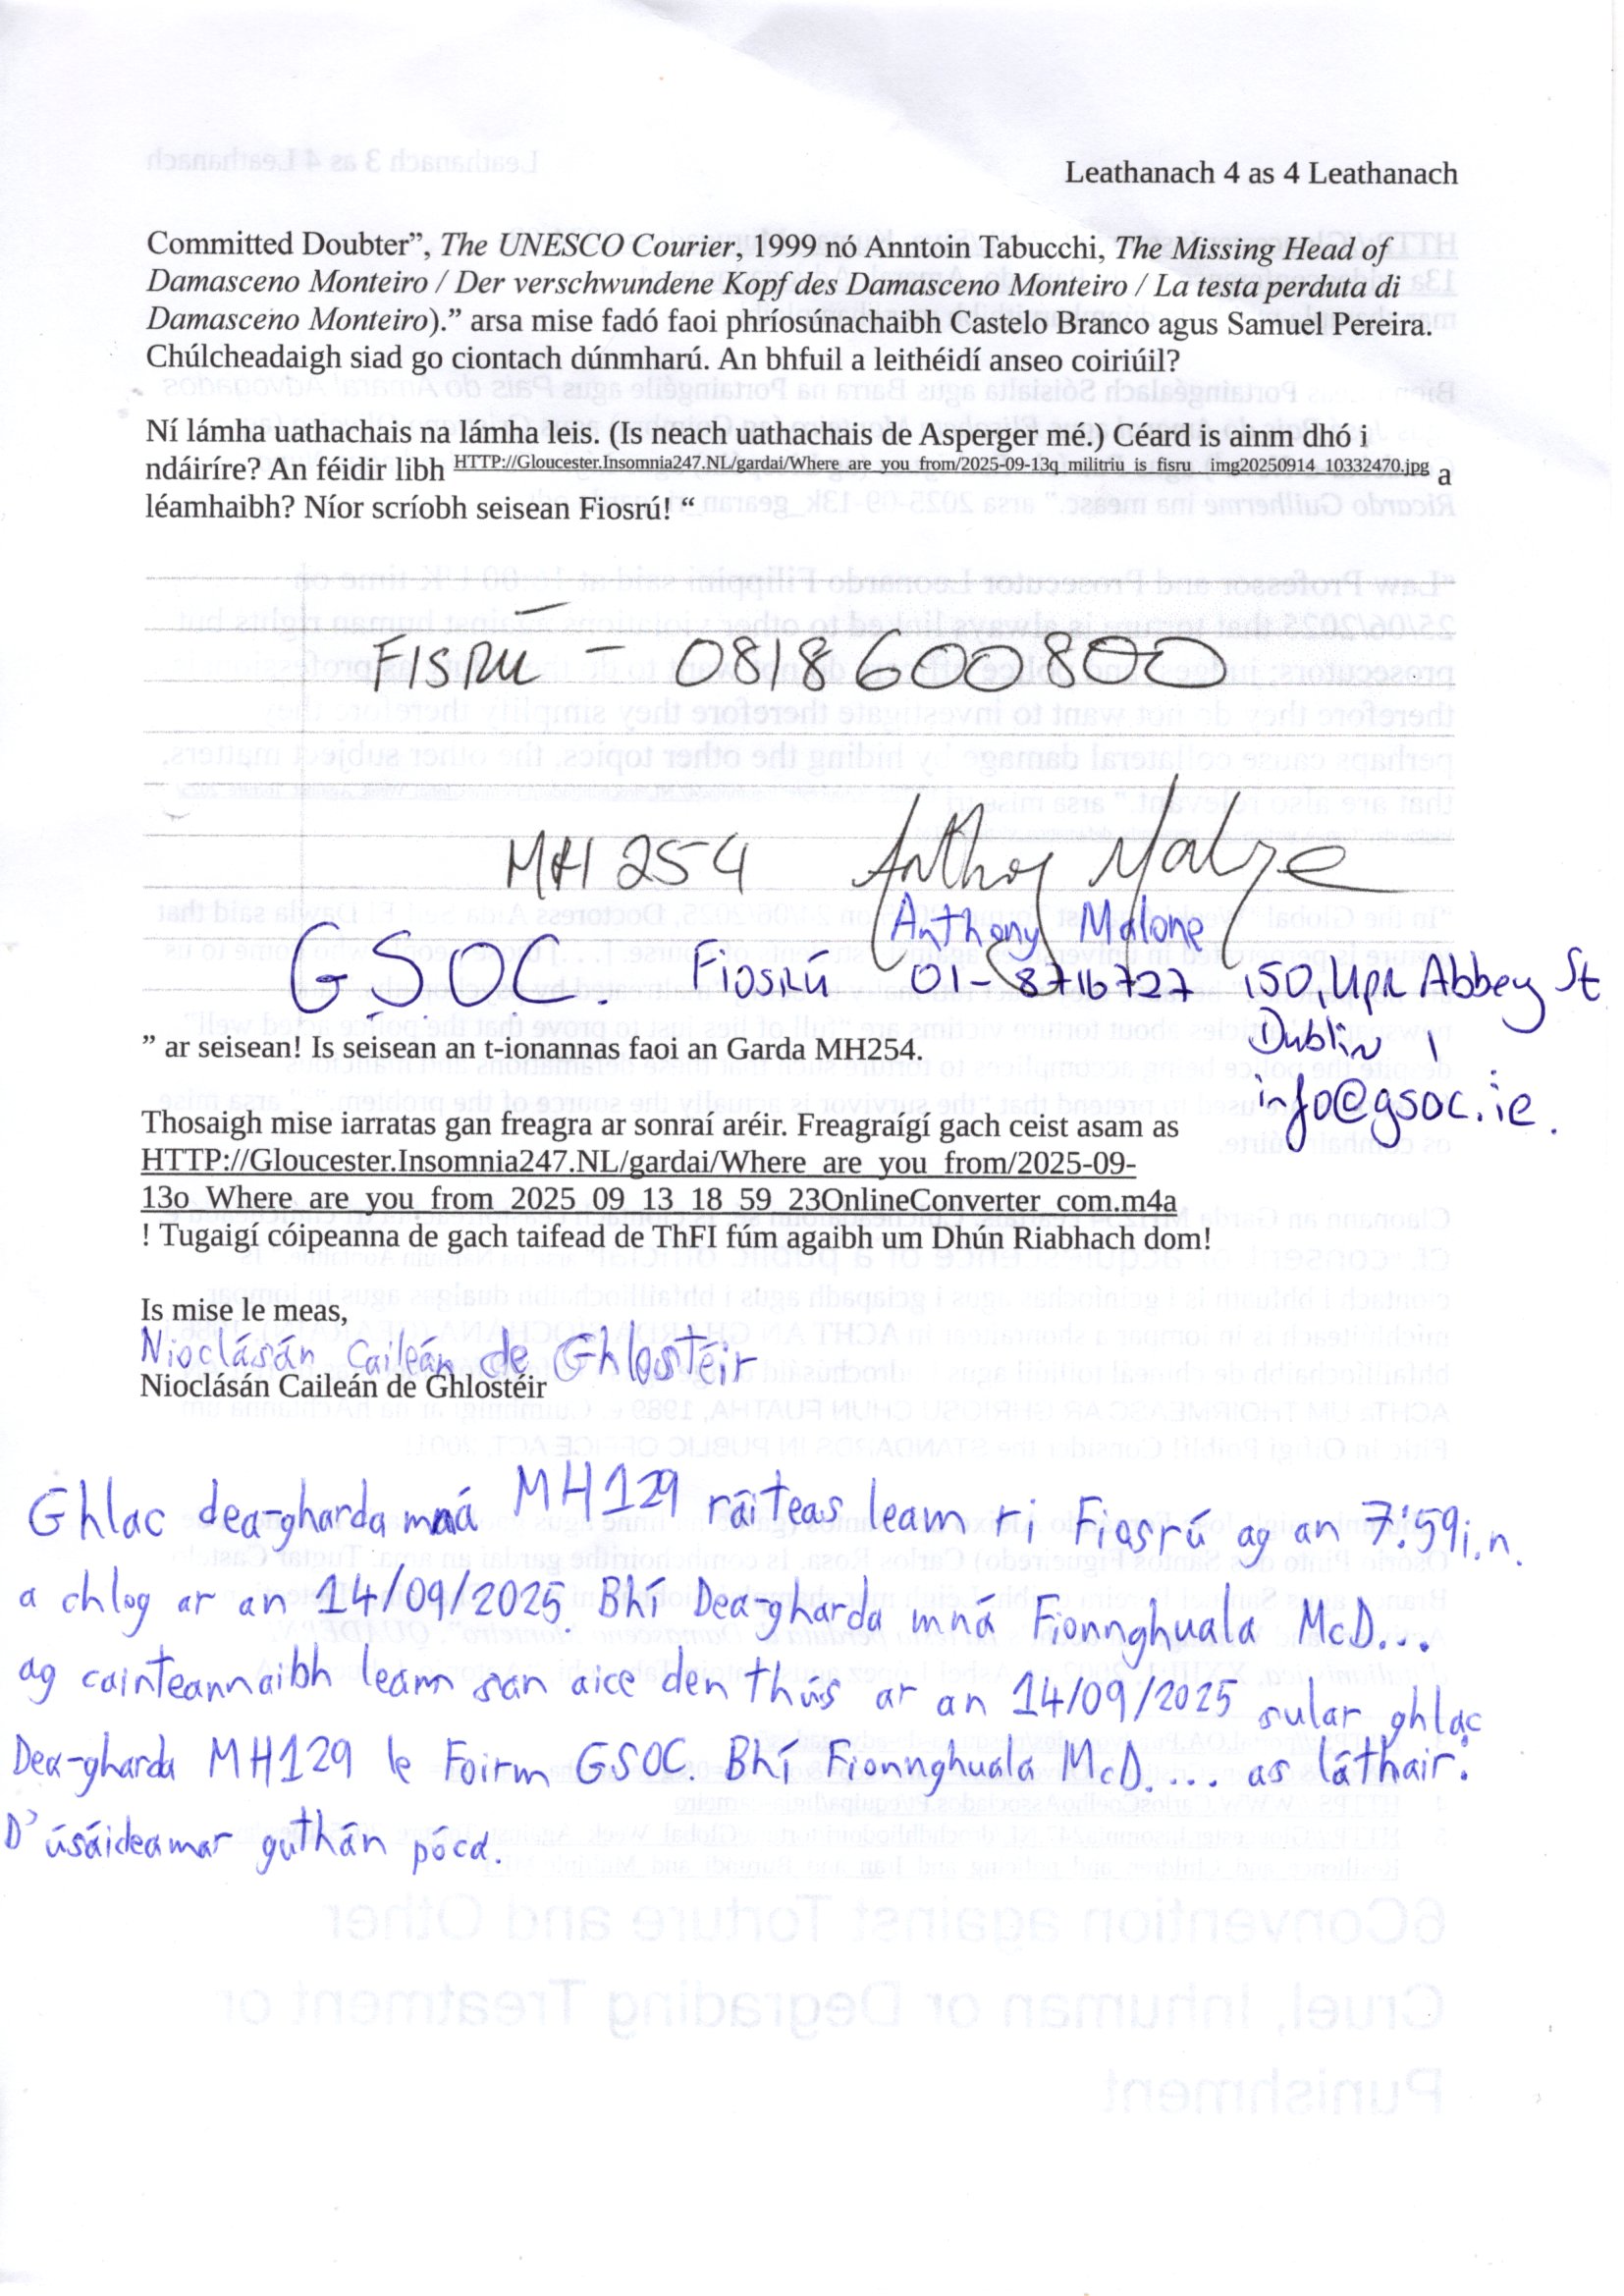 Leathanach 4 as 4 Leathanach
Committed Doubter”, The UNESCO Courier, 1999 nó Anntoin Tabucchi, The Missing Head of
Damasceno Monteiro / Der verschwundene Kopf des Damasceno Monteiro / La testa perduta di
Damasceno Monteiro).” arsa mise fadó faoi phríosúnachaibh Castelo Branco agus Samuel Pereira.
Chúlcheadaigh siad go ciontach dúnmharú. An bhfuil a leithéidí anseo coiriúil?
Ní lámha uathachais na lámha leis. (Is neach uathachais de Asperger mé.) Céard is ainm dhó i
ndáiríre? An féidir libh HTTP://Gloucester.Insomnia247.NL/gardai/Where_are_you_from/2025-09-13q_militriu_is_fisru__img20250914_10332470.jpg a
léamhaibh? Níor scríobh seisean Fiosrú! “
FISRU - 0818600800
MH 254 Anthony Malone
Anthony Malone
GSOC Fiosrú 01-8716727 150, Upr Abbey St
Dublin 1
info@gsoc.ie.
” ar seisean! Is seisean an t-ionannas faoi an Garda MH254.
Thosaigh mise iarratas gan freagra ar sonraí aréir. Freagraígí gach ceist asam as
HTTP://Gloucester.Insomnia247.NL/gardai/Where_are_you_from/2025-09-
13o_Where_are_you_from_2025_09_13_18_59_23OnlineConverter_com.m4a
! Tugaigí cóipeanna de gach taifead de ThFI fúm agaibh um Dhún Riabhach dom!
Is mise le meas,
Nioclásán Caileán de Ghlostéir
Nioclásán Caileán de Ghlostéir
Ghlac dea-gharda mná MH129 ráiteas leam ri Fiosrú ag an 7:59i.n.
a chlog ar an 14/09/2025. Bhí Dea-gharda mná Fionnghuala McD...
ag cainteannaibh leam san aice den thús ar an 14/09/2025 sular ghlac
Dea-gharda MH129 le Foirm GSOC. Bhí Fionnghuala McD.... as láthair:
D'úsáideamar guthán póca.